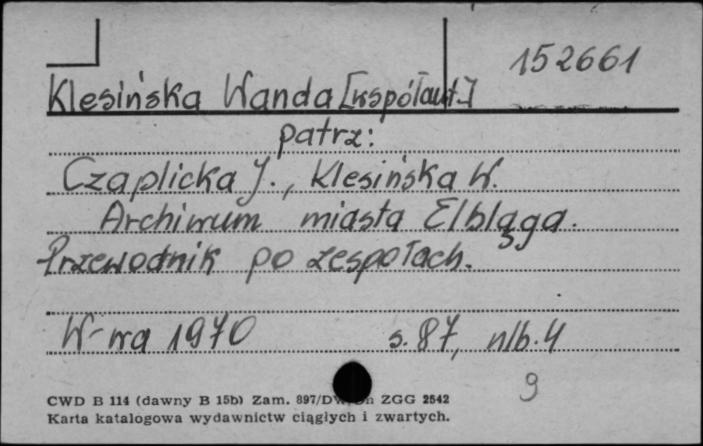 152661
Klesińska Wanda [współaut.]
patrz:
Czaplicka J., Klesińska W.
Archiwum miasta Elbląga.
Przewodnik po zespołach.
W-wa 1970 s. 87, nlb. 4
9
CWD B 114 (dawny B 15b) Zam. 897/D ZGG 2542
Karta katalogowa wydawnictw ciągłych i zwartych.